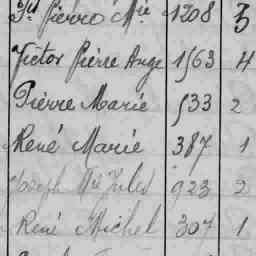 Jh Pierre Mie 1208 5
Victor Pierre Ange 1563 4
Pierre Marie 533 2
René Marie 387 1
Joseph Mie Jules 923 2
René Michel 307 1